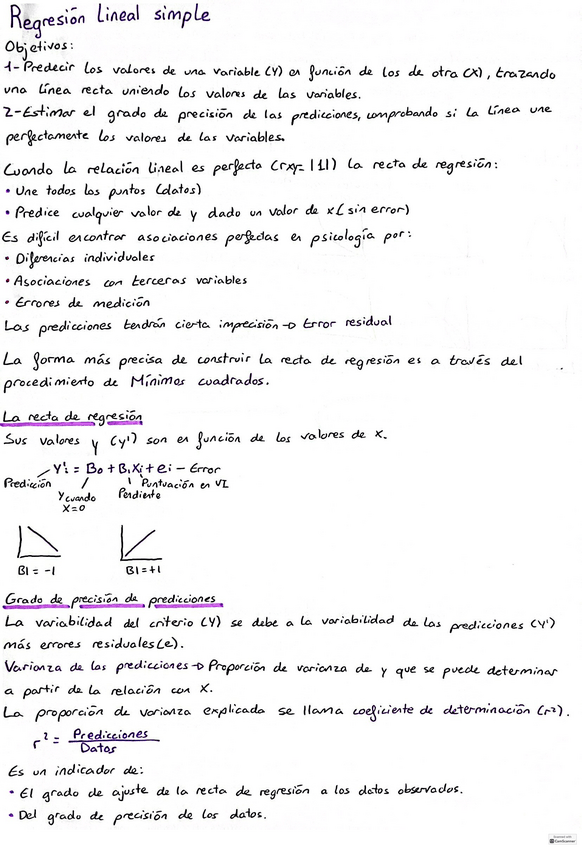 Regresión lineal simple
Objetivos:
1-Predecir los valores de una variable (Y) en función de los de otra (X), trazando
una línea recta uniendo los valores de las variables.
2-Estimar el grado de precisión de las predicciones, comprobando si la línea une
perfectamente los valores de las variables.
Cuando la relación lineal es perfecta (rxy= |1|) la recta de regresión:
• Une todos los puntos (datos)
• Predice cualquier valor de y dado un valor de x (sin error)
Es difícil encontrar asociaciones perfectas en psicología por:
• Diferencias individuales
• Asociaciones con terceras variables
• Errores de medición
Las predicciones tendrán cierta imprecisión → Error residual
La forma más precisa de construir la recta de regresión es a través del
procedimiento de Mínimos cuadrados.
La recta de regresión
Sus valores y (y') son en función de los valores de X.
Y'i = B0 + B1Xi + ei - Error
Predicción
Y cuando
X=0
Pendiente
Puntuación en VI
B1 = -1
B1 = +1
Grado de precisión de predicciones
La variabilidad del criterio (Y) se debe a la variabilidad de las predicciones (Y')
más errores residuales (e).
Varianza de las predicciones → Proporción de varianza de y que se puede determinar
a partir de la relación con X.
La proporción de varianza explicada se llama coeficiente de determinación (r²).
r² = Predicciones
Datos
Es un indicador de:
• El grado de ajuste de la recta de regresión a los datos observados.
• Del grado de precisión de los datos.
CamScanner